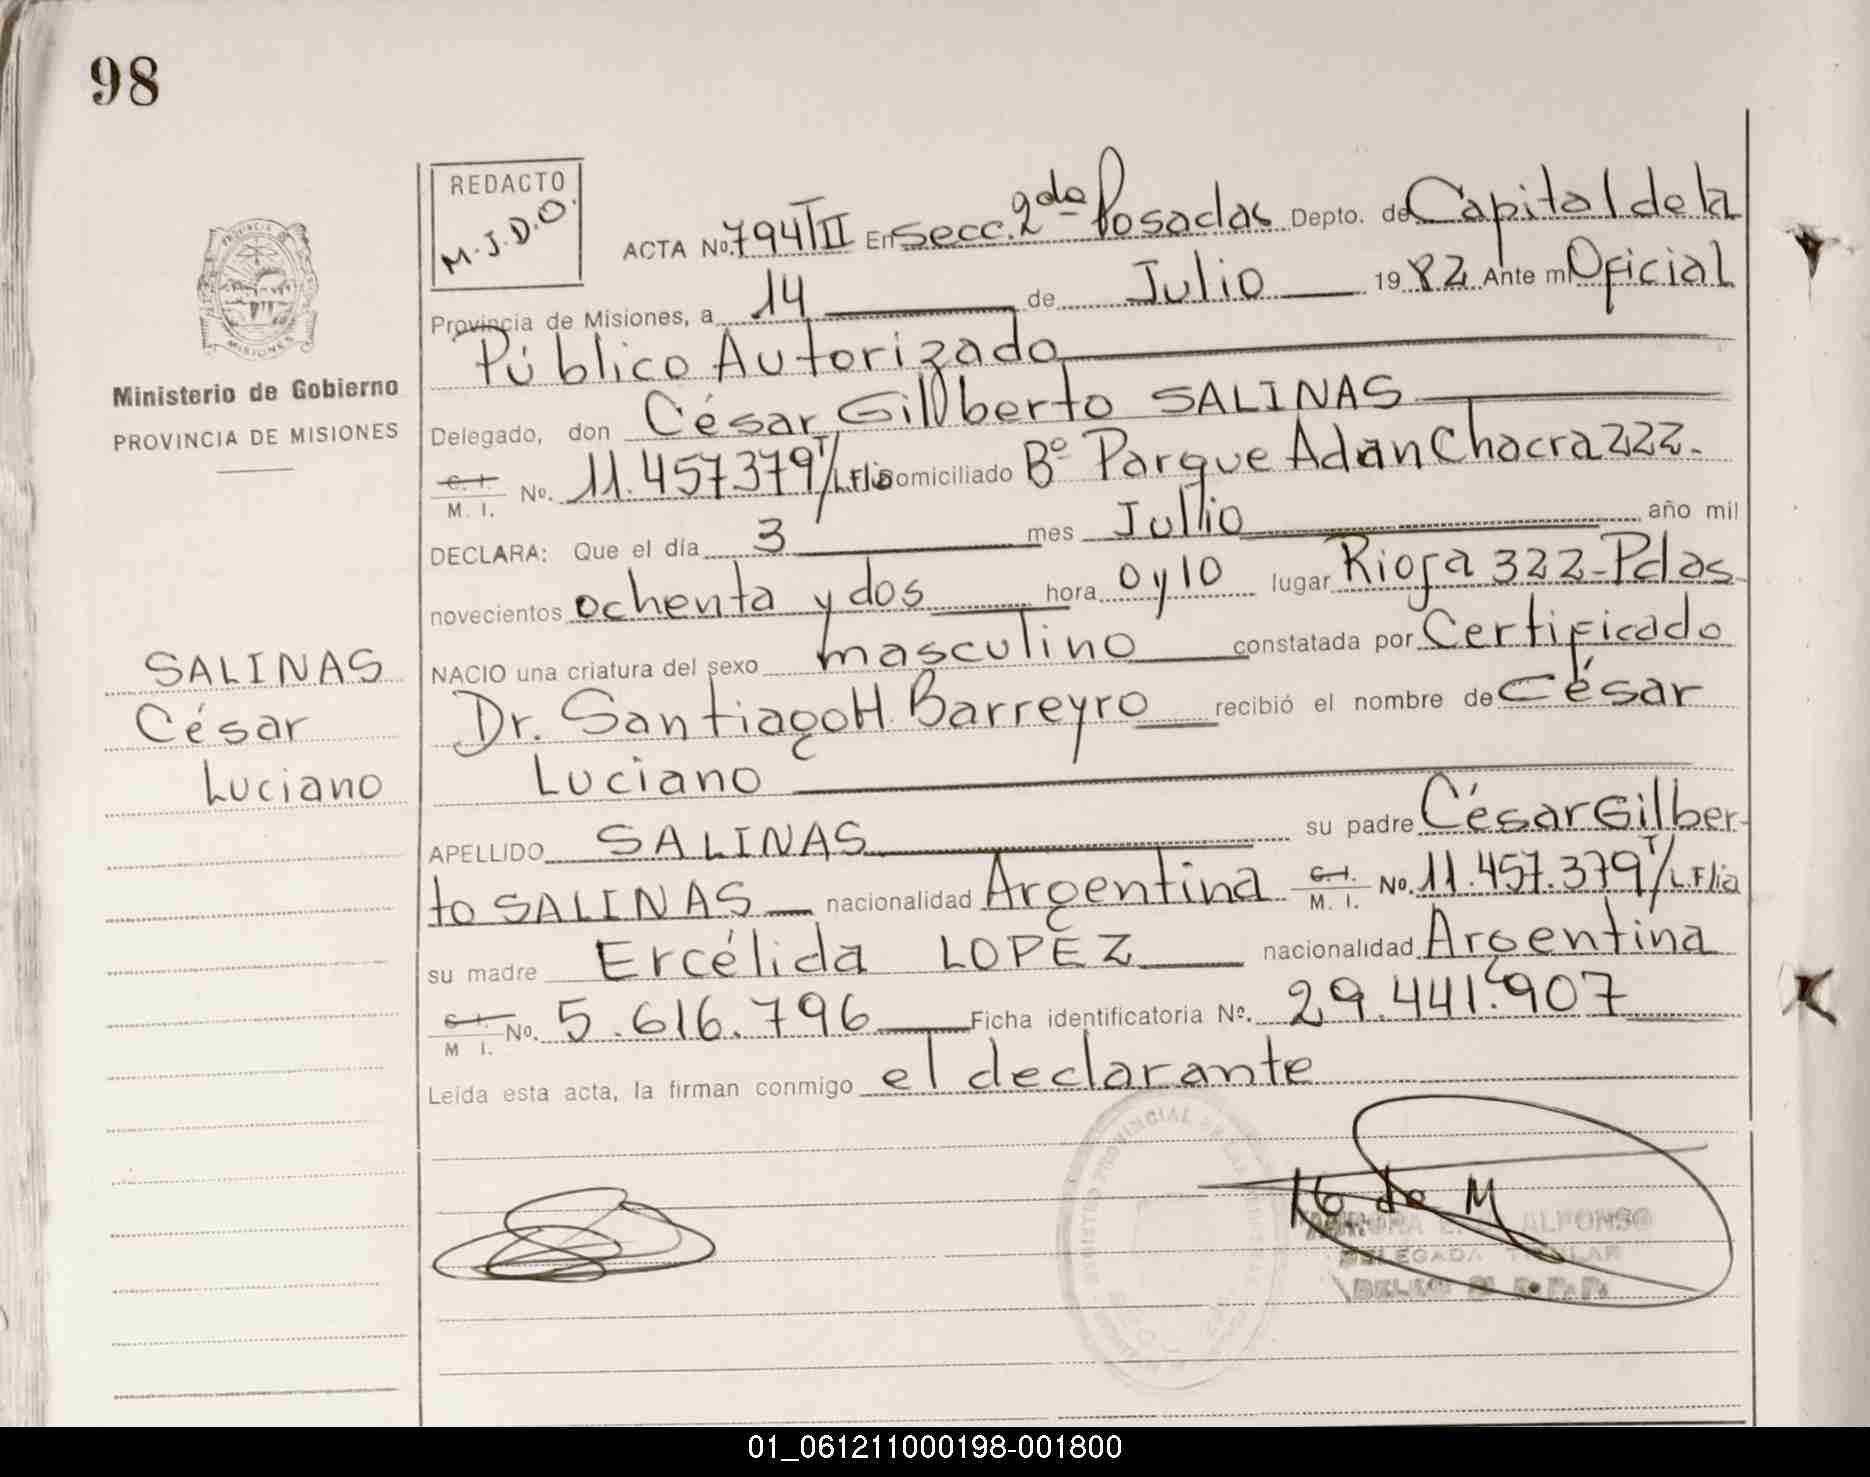 98
REDACTO
M.J.D.O.
ACTA No. 794 TII En Secc. 2da Posadas Depto. de Capital de la
Provincia de Misiones, a 14 de Julio 1982 Ante mi Oficial
Público Autorizado
Delegado, don César Gilberto SALINAS
C. I.
M. I. No. 11.457.379 T/L.Flia Domiciliado Bº Parque Adan Chacra 222.
DECLARA: Que el día 3 mes Julio año mil
novecientos ochenta y dos hora 0 y 10 lugar Rioja 322-Pdas
NACIO una criatura del sexo masculino constatada por Certificado
Dr. Santiago H. Barreyro recibió el nombre de César
Luciano
APELLIDO SALINAS su padre César Gilber-
to SALINAS nacionalidad Argentina C. I. M. I. No. 11.457.379 T/L.Flia
su madre Ercélida LOPEZ nacionalidad Argentina
C. I.
M I. No. 5.616.796 Ficha identificatoria Nº. 29.441.907
Leída esta acta, la firman conmigo el declarante
PROVINCIA DE
MISIONES
Ministerio de Gobierno
PROVINCIA DE MISIONES
SALINAS
César
Luciano
ALFONSO
DELEGADA TITULAR
01_061211000198-001800